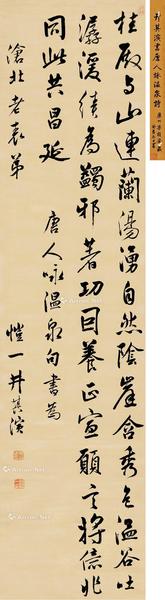 桂殿与山連蘭湯湧自然陰崖含秀色温谷吐
潺湲績為蠲邪著功因養正宣願言將億兆
同此共昌延　唐人咏温泉句書為
滄北老表弟
愷一井其演
井其演書唐人詠温泉詩